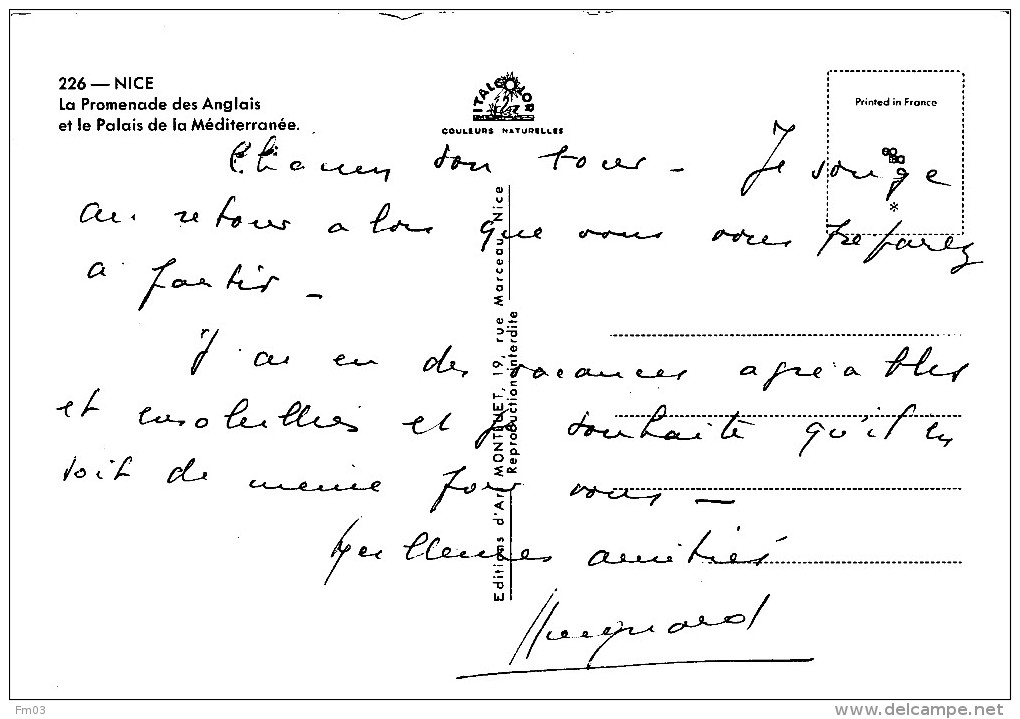 226 — NICE
La Promenade des Anglais
et le Palais de la Méditerranée.
ITALCOLOR
COULEURS NATURELLES
Printed in France
Chacun son tour - Je songe
au retour alors que vous vous préparez
à partir -
J'ai eu des vacances agréables
et ensoleillées et je souhaite qu'il en
soit de même pour vous —
Meilleures amitiés
Editions d'Art MONTLUET, 19, rue Marceau, Nice
Reproduction interdite
Fm03
delcampe.net